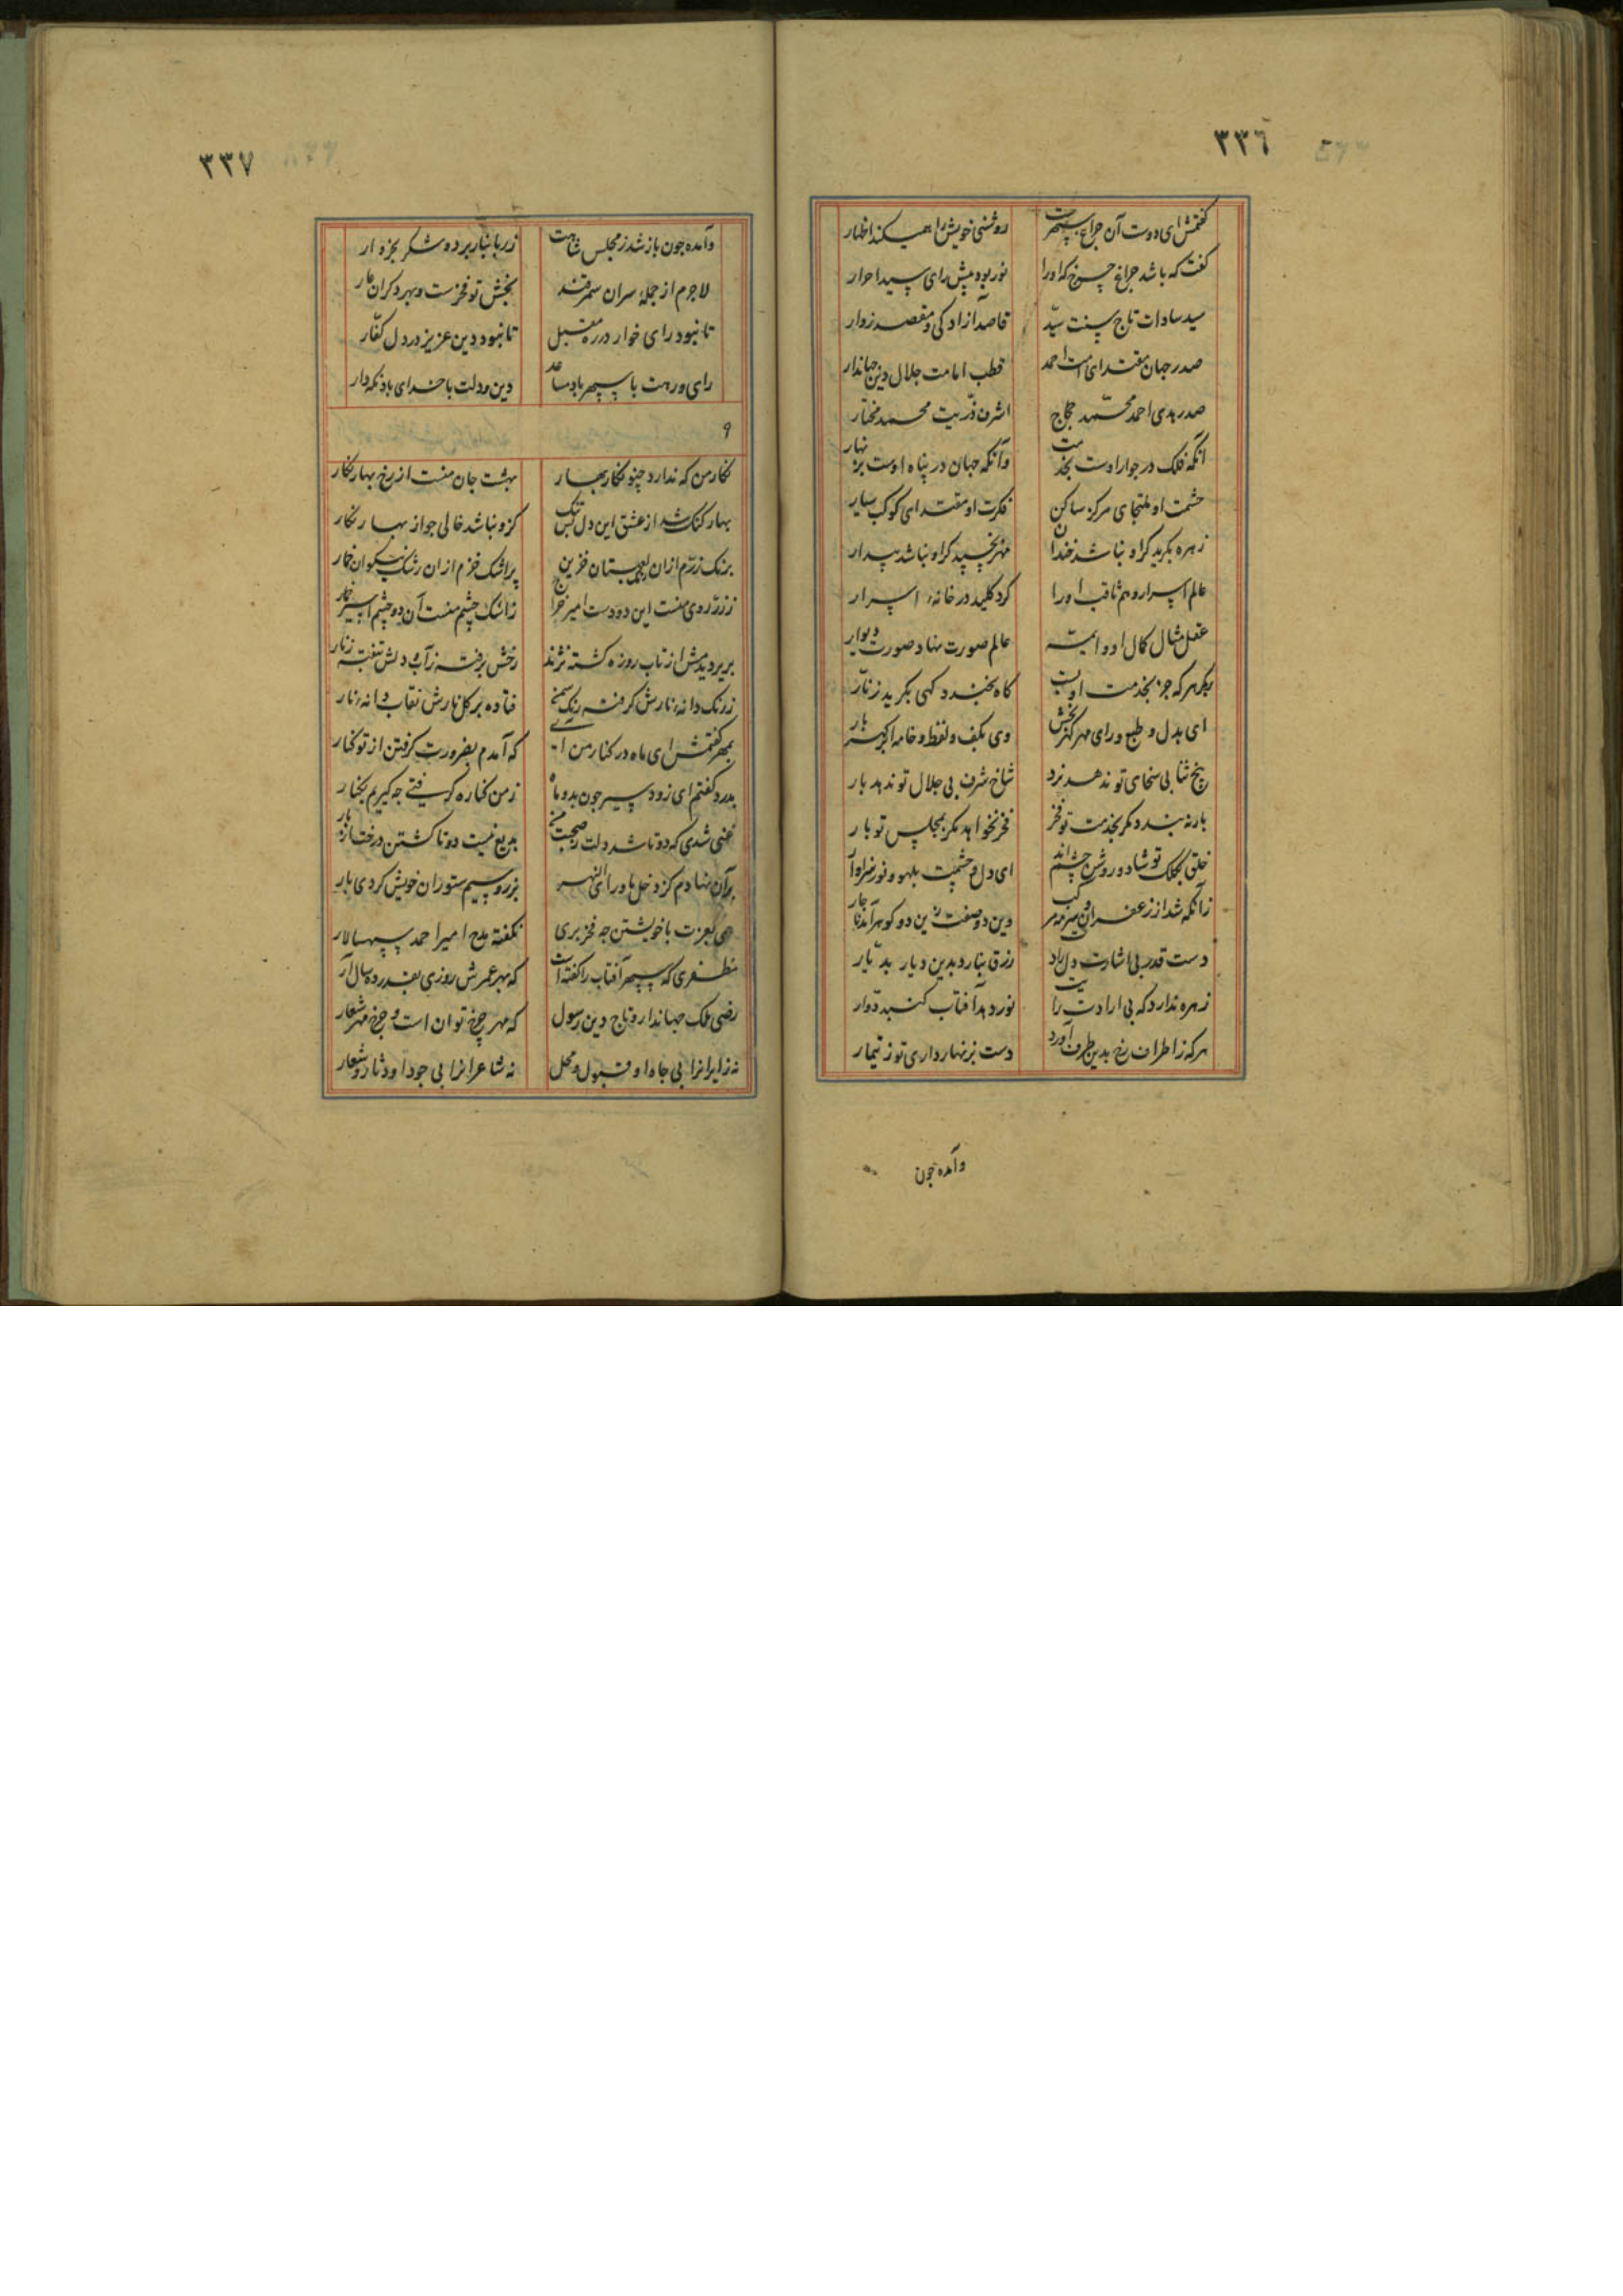 ٣٣٦
گفتمش ای دوست آن چراغ سپهرست روشنی خویش را همیکند اظهار
گفت که باشد چراغ چرخ که او را نور بود پیش رای سید احرار
سید سادات تاج سنت سید قاصد آزادکی و مقصد زوار
صدر جهان مقتدای امت احمد قطب امامت جلال دین جهاندار
صدر هدی احمد محمد حجاج اشرف ذریت محمد مختار
آنکه فلک در جوار اوست بخدمت وآنکه جهان در پناه اوست بزنهار
حشمت او ملتجای مرکز ساکن فکرت او مقتدای کوکب سیار
زهره بکرید کر او نباشد خندان مهر بخسپد کر او نباشد بیدار
عالم اسرار وهم ثاقب او را کرد کلید در خانهٔ اسرار
عقل مثال کمال او و ایمه عالم صورت نهاد صورت دیوار
هرکه جز بخدمت او لب کاه بخندد کهی بکرید زنار
ای بدل و طبع و رای مهر کهربخش وی بکف و لفظ و خامه ابر کهربار
بیخ ثنا بی سخای تو ندهد نرد شاخ شرف بی جلال تو ندهد بار
بار نبندد مکر بخدمت تو فخر فخر نخواهد مکر بمجلس تو بار
خلق بکلک تو شاد و روشن چشم اند ای دل و چشمت بلهو و نور سزاوار
زانکه شد از زعفران و مرکب دین دو صفت زین دو کوهر آمد ناچار
دست قدر بی اشارت دل راد رزق نیارد بدین دیار بدیار
زهره ندارد که بی ارادت رایت نور دهد آفتاب کنبد دوار
هرکه ز اطراف رخ بدین طرف آورد دست بزنهار داری تو ز تیمار
وآمده چون
٣٣٧
وآمده چون باز شد ز مجلس شاهت زر بانبار برده شکر بخروار
لاجرم از جملهٔ سران سمرقند بخشش تو فخرست و بهر دکران عار
تا نبود رای خوار در ره مقبل تا نبود دین عزیز در دل کفار
رای و رهت با سپهر باد مساعد دین و دولت با خدای باد نکه دار
٩
نکار من که ندارد چنو نکار بهار بهشت جان منست از رخ بهار نکار
بهار کنک شد از عشق این دل تنک کزو نباشد خالی جواز بهار نکار
برنک زرم ازان لعبستان خزین پر اشک خزم ازان رشک نیکوان خمار
ز زر روی منست این دو دست امیر خراج ز اشک چشم منست آن دو چشم اسیر خمار
برید دیدمش از تاب روزه کشته نژند رخش برفته ز آب و دلش بتفته ز نار
ز رنک دانهٔ نارش کرفته رنک سمن فتاده بر کل نارش نقاب دانهٔ نار
بمهر کفتمش ای ماه در کنار من آ که آمدم بضرورت کرفتن از تو کنار
بدرد کفتم ای زود سیر چون بدو ماه ز من کناره کرفتی چه کیریم بکنار
غنی شدی که دوتا شد دلت ز صحبت من بدیع نیست دوتا کشتن درخت از بار
بر آن نهادم کز دخل ماوراء النهر بزر و سیم ستوران خویش کردی بار
همی بعزت با خویشتن چه فخر بری نکفته مدح امیر احمد سپهسالار
مظفری که سپهر آفتاب را کفته است که مهر عمرش روزی بقدر ده سال آر
رضی ملک جهاندار و تاج دین رسول که مهر چرخ توان است و چرخ مهر شعار
نه زایرانرا بی جاه او قبول و محل نه شاعرانرا بی جود او دثار و شعار